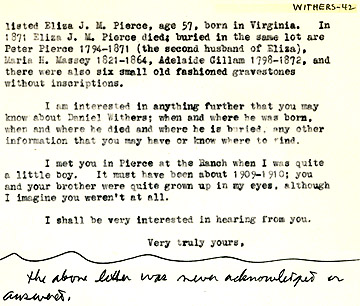 WITHERS-42
listed Eliza J. M. Pierce, age 57, born in Virginia. In
1871 Eliza J. M. Pierce died; buried in the same lot are
Peter Pierce 1794-1871 (the second husband of Eliza),
Maria H. Massey 1821-1864, Adelaide Gillam 1798-1872, and
there were also six small old fashioned gravestones
without inscriptions.
I am interested in anything further that you may
know about Daniel Withers; when and where he was born,
when and where he died and where he is buried, any other
information that you may have or know where to find.
I met you in Pierce at the Ranch when I was quite
a little boy. It must have been about 1909-1910; you
and your brother were quite grown up in my eyes, although
I imagine you weren't at all.
I shall be very interested in hearing from you.
Very truly yours,
the above letter was never acknowledged or
answered.